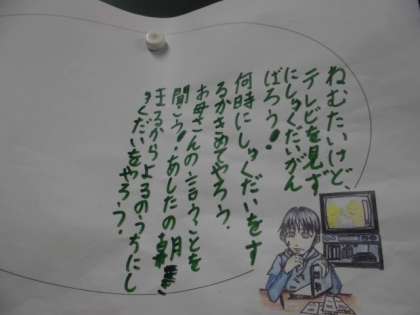 ねむたいけど、
テレビを見ず
にしゅくだいがん
ばろう!
何時にしゅくだいをす
るかきめてやろう。
お母さんの言うことを
聞こう!あしたの朝
こまるからよるのうちにし
ゅくだいをやろう。